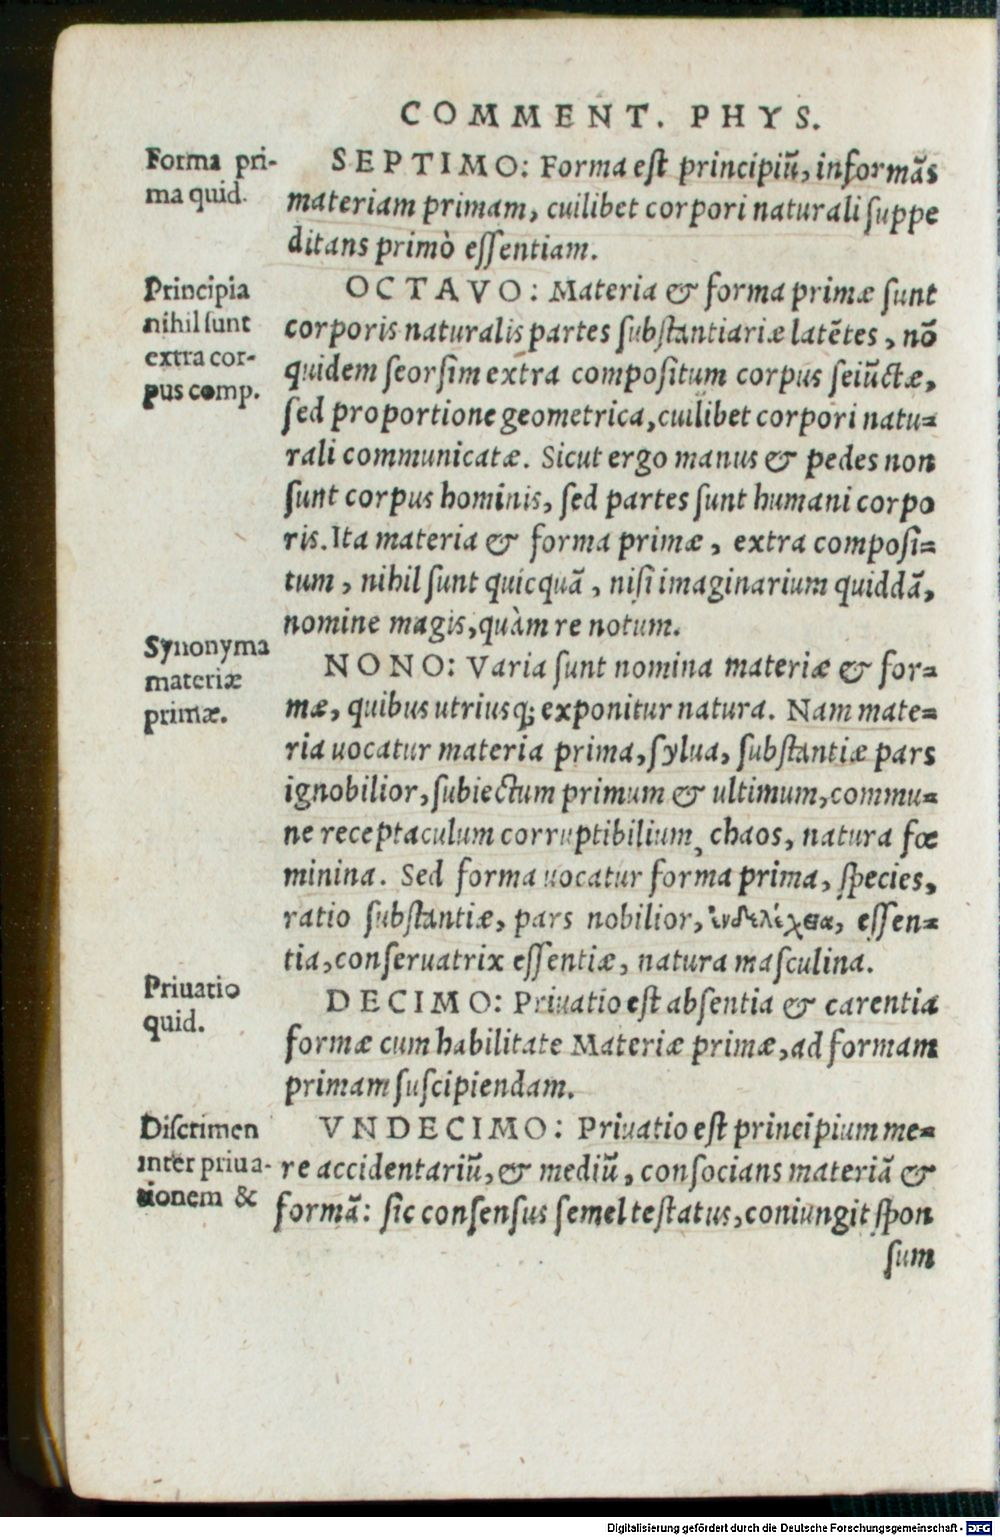 COMMENT. PHYS.
Forma pri-
ma quid.
SEPTIMO: Forma eſt principiũ, informãs
materiam primam, cuilibet corpori naturali ſuppe
ditans primò eſſentiam.
Principia
nihil ſunt
extra cor-
pus comp.
OCTAVO: Materia & forma primæ ſunt
corporis naturalis partes ſubſtantiariæ latẽtes, nõ
quidem ſeorſim extra compoſitum corpus ſeiũctæ,
ſed proportione geometrica, cuilibet corpori natu=
rali communicatæ. Sicut ergo manus & pedes non
ſunt corpus hominis, ſed partes ſunt humani corpo
ris. Ita materia & forma primæ, extra compoſi=
tum, nihil ſunt quicquã, niſi imaginarium quiddã,
nomine magis, quàm re notum.
Synonyma
materiæ
primæ.
NONO: Varia ſunt nomina materiæ & for=
mæ, quibus utriusq; exponitur natura. Nam mate=
ria uocatur materia prima, ſylua, ſubſtantiæ pars
ignobilior, ſubiectum primum & ultimum, commu=
ne receptaculum corruptibilium, chaos, natura fœ
minina. Sed forma uocatur forma prima, ſpecies,
ratio ſubſtantiæ, pars nobilior, ἐνδελέχεια, eſſen=
tia, conſeruatrix eſſentiæ, natura maſculina.
Priuatio
quid.
DECIMO: Priuatio eſt abſentia & carentia
formæ cum habilitate Materiæ primæ, ad formam
primam ſuſcipiendam.
Diſcrimen
inter priua-
tionem &
VNDECIMO: Priuatio eſt principium me=
re accidentariũ, & mediũ, conſocians materiã &
formã: ſic conſenſus ſemel teſtatus, coniungit ſpon
ſum
Digitalisierung gefördert durch die Deutsche Forschungsgemeinschaft - DFG